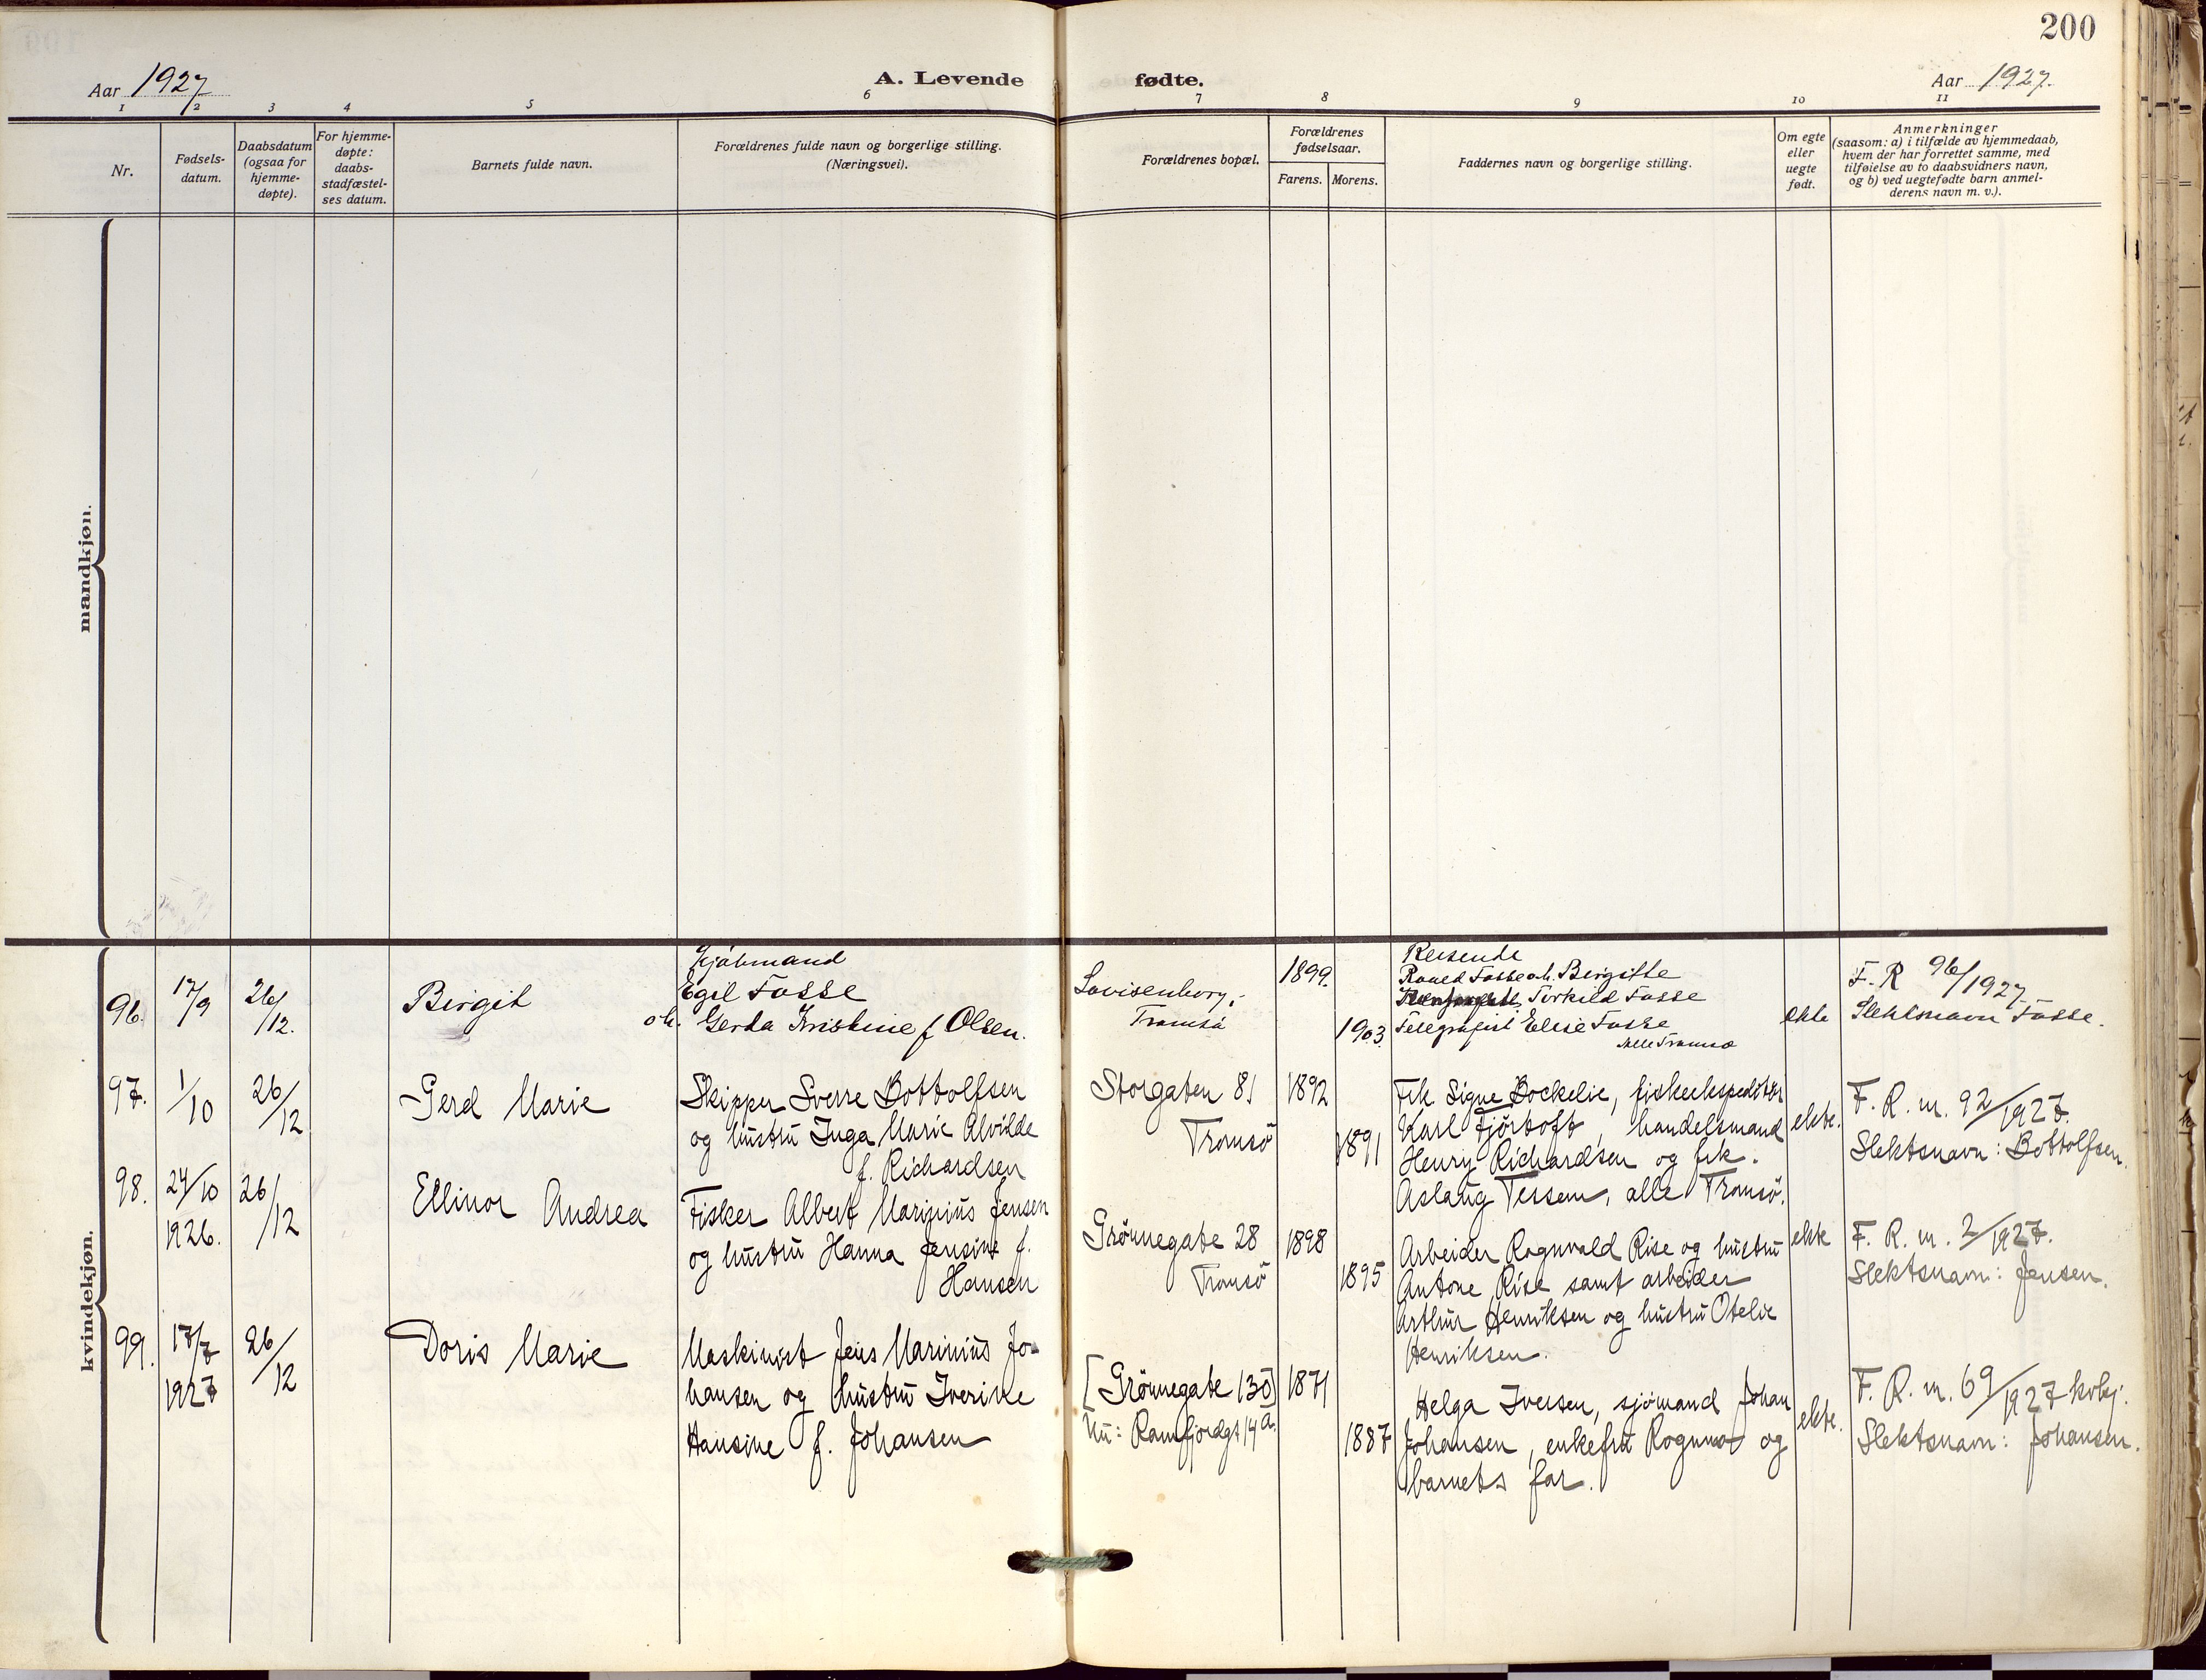 200
Aar 1927
A. Levende
fødte.
Aar 1927.
1 2 3 4 5 6 7 8 9 10 11
Nr.
Fødsels-
datum.
Daabsdatum
(ogsaa for
hjemme-
døpte).
For hjemme-
døpte:
daabs-
stadfæstel-
ses datum.
Barnets fulde navn.
Forældrenes fulde navn og borgerlige stilling.
(Næringsvei).
Forældrenes bopæl.
Forældrenes
fødselsaar.
Farens. Morens.
Faddernes navn og borgerlige stilling.
Om egte
eller
uegte
født.
Anmerkninger
(saasom: a) i tilfælde av hjemmedaab,
hvem der har forrettet samme, med
tilføielse av to daabsvidners navn,
og b) ved uegtefødte barn anmel-
derens navn m. v.).
mandkjøn.
kvindekjøn.
96. 17/9 26/12. Birgit
Kjöbmand
Egil Fosse
o h. Gerda Kristine f Olsen.
Lovisenborg,
Tromsö
1899. 1903.
Reisende
Fosse o.h. Birgitte
Torkild Fosse
Telegrafist Elise Fosse
Alle Tromsø
ekte
F. R 96/1927
Slektsnavn Fosse.
97. 1/10 26/12 Gerd Marie
Skipper Sverre Bottolfsen
og hustru Inga Marie Alvilde
f. Richardsen
Storgaten 81
Tromsö
1892 1891
Frk Signe Bockelie, fiskeekspeditör
Karl Fjörtoft, handelsmand
Henry Richardsen og frk.
Aslaug Tessem, alle Tromsö.
ekte.
F. R. m. 92/1927.
Slektsnavn: Bottolfsen.
98. 24/10 1926. 26/12 Ellinor Andrea
Fisker Albert Marinius Jensen
og hustru Hanna Jensine f.
Hansen
Grönnegate 28
Tromsö
1898 1895
Arbeider Rognvald Rise og hustru
Antone Rise samt arbeider
Arthur Henriksen og hustru Otelie
Henriksen.
ekte
F. R. m. 2/1927.
Slektsnavn: Jensen.
99. 17/7 1927 26/12 Doris Marie
Maskinist Jens Marinius Jo-
hansen og hustru Iverine
Hansine f. Johansen
[Grönnegate 130]
Nu: Ramfjordgt 14 a.
1871 1887
Helga Iversen, sjömand Johan
Johansen, enkefru Rognmo og
barnets far.
ekte.
F. R. m. 69/1927 kvkj.
Slektsnavn: Johansen.